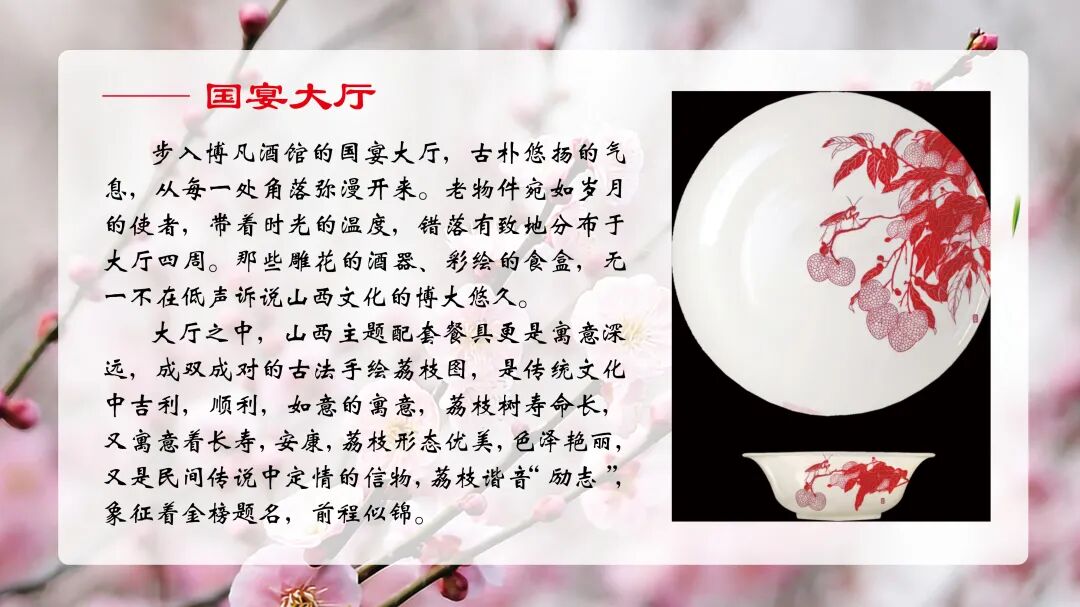 国宴大厅
步入博凡酒馆的国宴大厅，古朴悠扬的气
息，从每一处角落弥漫开来。老物件宛如岁月
的使者，带着时光的温度，错落有致地分布于
大厅四周。那些雕花的酒器、彩绘的食盒，无
一不在低声诉说山西文化的博大悠久。
大厅之中，山西主题配套餐具更是寓意深
远，成双成对的古法手绘荔枝图，是传统文化
中吉利，顺利，如意的寓意，荔枝树寿命长，
又寓意着长寿，安康，荔枝形态优美，色泽艳丽，
又是民间传说中定情的信物，荔枝谐音“励志”，
象征着金榜题名，前程似锦。